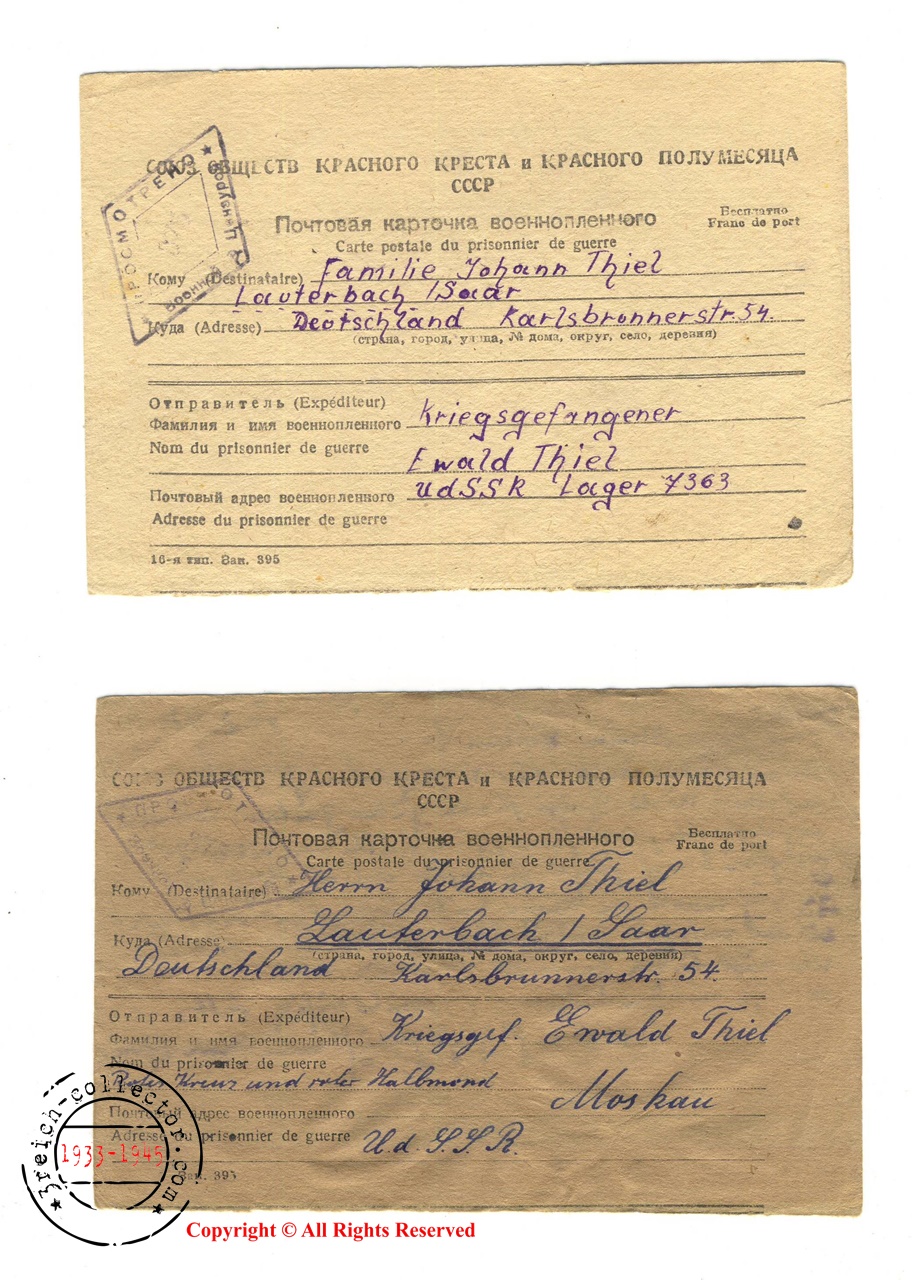 СОЮЗ ОБЩЕСТВ КРАСНОГО КРЕСТА и КРАСНОГО ПОЛУМЕСЯЦА
СССР
Почтовая карточка военнопленного
Бесплатно
Franc de port
Carte postale du prisonnier de guerre
ПРОСМОТРЕНО
Военной Цензурой
Кому (Destinataire) Familie Johann Thiel
Lauterbach /Saar
Куда (Adresse) Deutschland Karlsbrunnerstr. 54.
(страна, город, улица, № дома, округ, село, деревня)
Отправитель (Expéditeur)
Фамилия и имя военнопленного Kriegsgefangener
Nom du prisonnier de guerre
Ewald Thiel
Почтовый адрес военнопленного UdSSR Lager 7363
Adresse du prisonnier de guerre
16-я тип. Зак. 395
СОЮЗ ОБЩЕСТВ КРАСНОГО КРЕСТА и КРАСНОГО ПОЛУМЕСЯЦА
СССР
Почтовая карточка военнопленного
Бесплатно
Franc de port
Carte postale du prisonnier de guerre
Кому (Destinataire) Herrn Johann Thiel
Куда (Adresse) Lauterbach / Saar
(страна, город, улица, № дома, округ, село, деревня)
Deutschland Karlsbrunnerstr. 54.
Отправитель (Expéditeur)
Фамилия и имя военнопленного Kriegsgef. Ewald Thiel
Nom du prisonnier de guerre
Rotes Kreuz und roter Halbmond
Moskau
Почтовый адрес военнопленного
Adresse du prisonnier de guerre U.d.S.S.R.
Зак. 395
3reich-collector.com
1933-1945
Copyright © All Rights Reserved